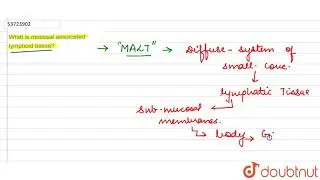 53723903
What is mucosal associated
lymphoid tissue?
→ "MALT" → Diffuse - system of
small conc.
↓
lymphatic Tissue
sub-mucosal
membranes.
↳ body → G
doubtnut